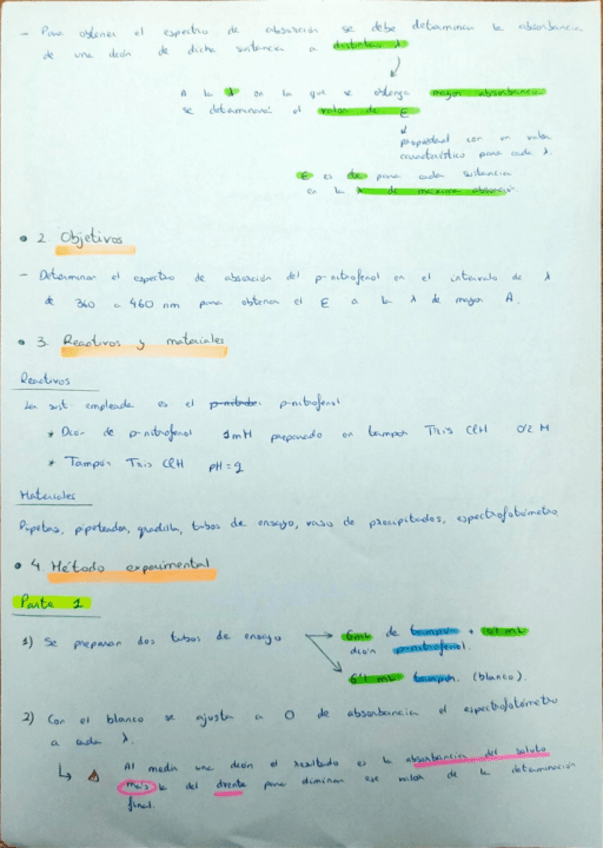 - Para obtener el espectro de absorción se debe determinar la absorbancia
de una dcón de dicha sustancia a distintas λ
A la λ en la que se obtenga mayor absorbancia
se determinará el valor de ε
propiedad con un valor
característico para cada λ.
ε es cte para cada sustancia
en la λ de máxima absorción.
• 2. Objetivos
- Determinar el espectro de absorción del p-nitrofenol en el intervalo de λ
de 340 a 460 nm para obtener el ε a la λ de mayor A.
• 3. Reactivos y materiales
Reactivos
La sust. empleada es el p-nitrofenol
* Dcón de p-nitrofenol 1mM preparado en tampón Tris ClH 0'2 M
* Tampón Tris ClH pH = 9
Materiales
Pipetas, pipeteador, gradilla, tubos de ensayo, vaso de precipitados, espectrofotómetro
• 4. Método experimental
Parte 1
1) Se preparan dos tubos de ensayo
6mL de tampón + 0'1 mL
dcón p-nitrofenol.
6'1 mL tampón. (blanco).
2) Con el blanco se ajusta a 0 de absorbancia el espectrofotómetro
a cada λ.
Al medir una dcón el resultado es la absorbancia del soluto
más la del dvente para eliminar ese valor de la determinación
final.